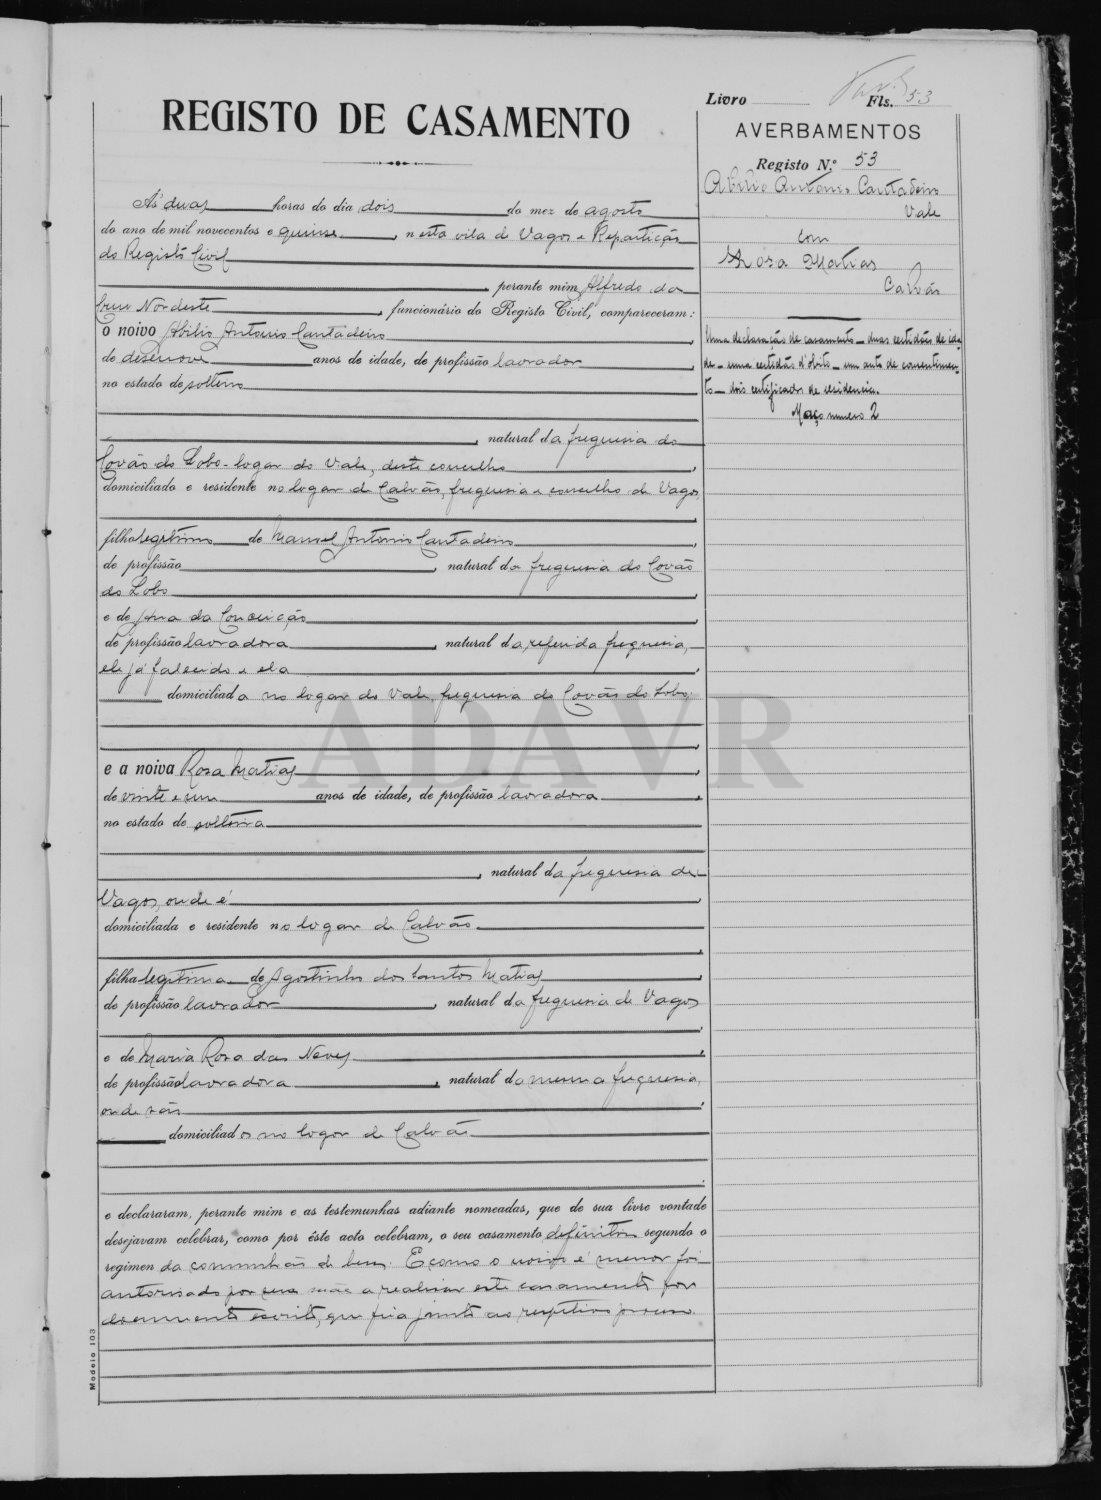 Livro Fls. 53
REGISTO DE CASAMENTO
AVERBAMENTOS
Registo N.º 53
Abilio Antonio Cantadeiro
Vale
com
Rosa Matias
Calvão
Uma declaração de casamento - duas certidões de ida-
de - uma certidão d'obito - um auto de consentimen-
to - dois certificados de residencia.
Maço numero 2
Ás duas horas do dia dois do mez de agosto
do ano de mil novecentos e quinze, nesta vila de Vagos e Repartição
do Registo Civil
perante mim, Alfredo da
Cruz Nordeste, funcionário do Registo Civil, compareceram:
o noivo Abilio Antonio Cantadeiro
de desenove anos de idade, de profissão lavrador
no estado de solteiro
natural da freguesia do
Covão do Lobo - logar do Vale, deste concelho
domiciliado e residente no logar de Calvão, freguesia e concelho de Vagos,
filho legitimo de Manuel Antonio Cantadeiro
de profissão, natural da freguesia do Covão
do Lobo
e de Ana da Conceição
de profissão lavradora, natural da referida freguesia,
ele já falecido e ela
domiciliada no logar do Vale, freguesia do Covão do Lobo,
ADAVR
e a noiva Rosa Matias
de vinte e um anos de idade, de profissão lavradora
no estado de solteira
natural da freguesia de
Vagos, onde é
domiciliada e residente no logar de Calvão
filha legitima de Agostinho dos Santos Matias
de profissão lavrador, natural da freguesia de Vagos
e de Maria Rosa das Neves
de profissão lavradora, natural da mesma freguesia,
onde são
domiciliados no logar de Calvão
e declararam, perante mim e as testemunhas adiante nomeadas, que de sua livre vontade
desejavam celebrar, como por êste acto celebram, o seu casamento definitivo segundo o
regimen da comunhão de bens. E como o noivo é menor foi
autorisado por sua mãe a realisar este casamento por
documento escrito, que fica junto ao respetivo processo.
Modelo 103